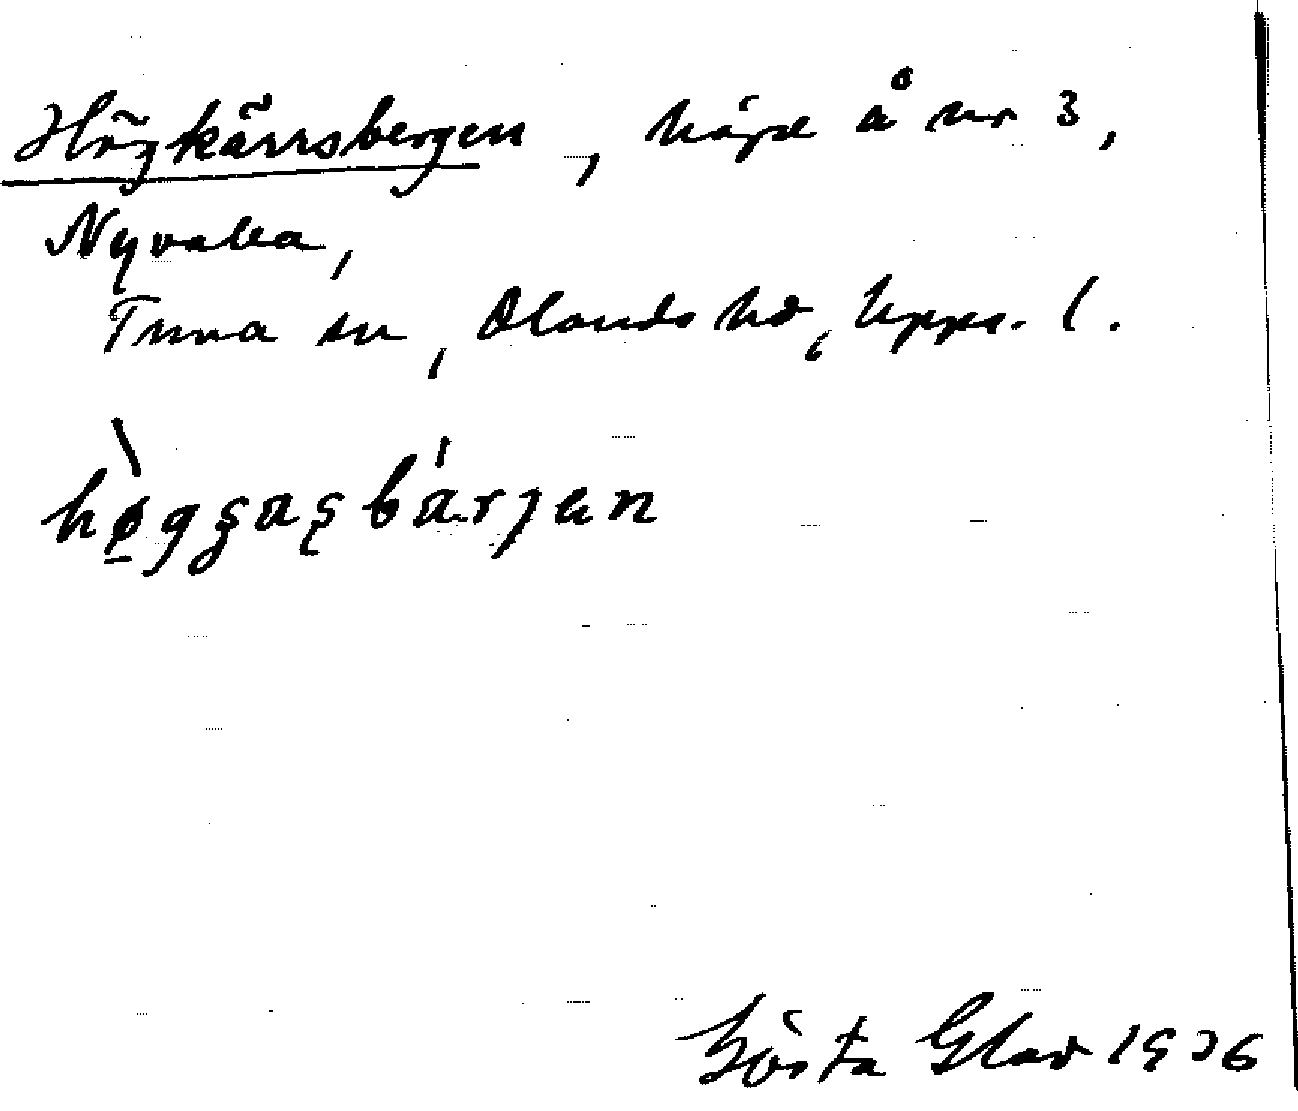 Högkärrsbergen, höjd å nr 3,
Nyvalla,
Tuna sn, Olands hd, Upps. l.
Gösta Glad 1936